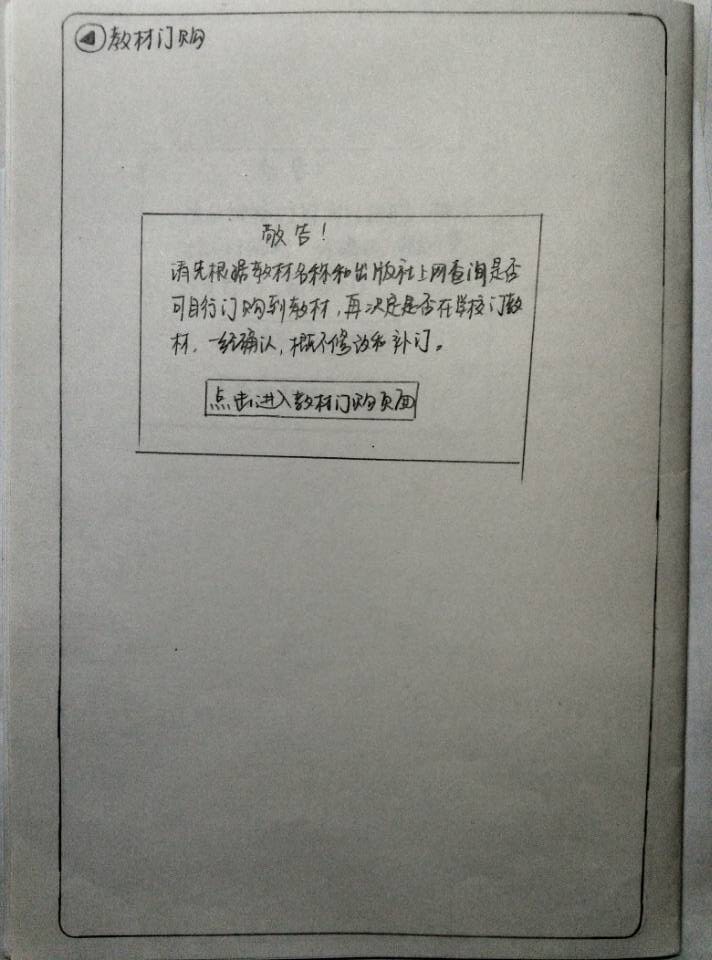 教材订购
敬告！
请先根据教材名称和出版社上网查询是否
可自行订购到教材，再决定是否在学校订教
材。一经确认，概不修改和补订。
点击进入教材订购页面